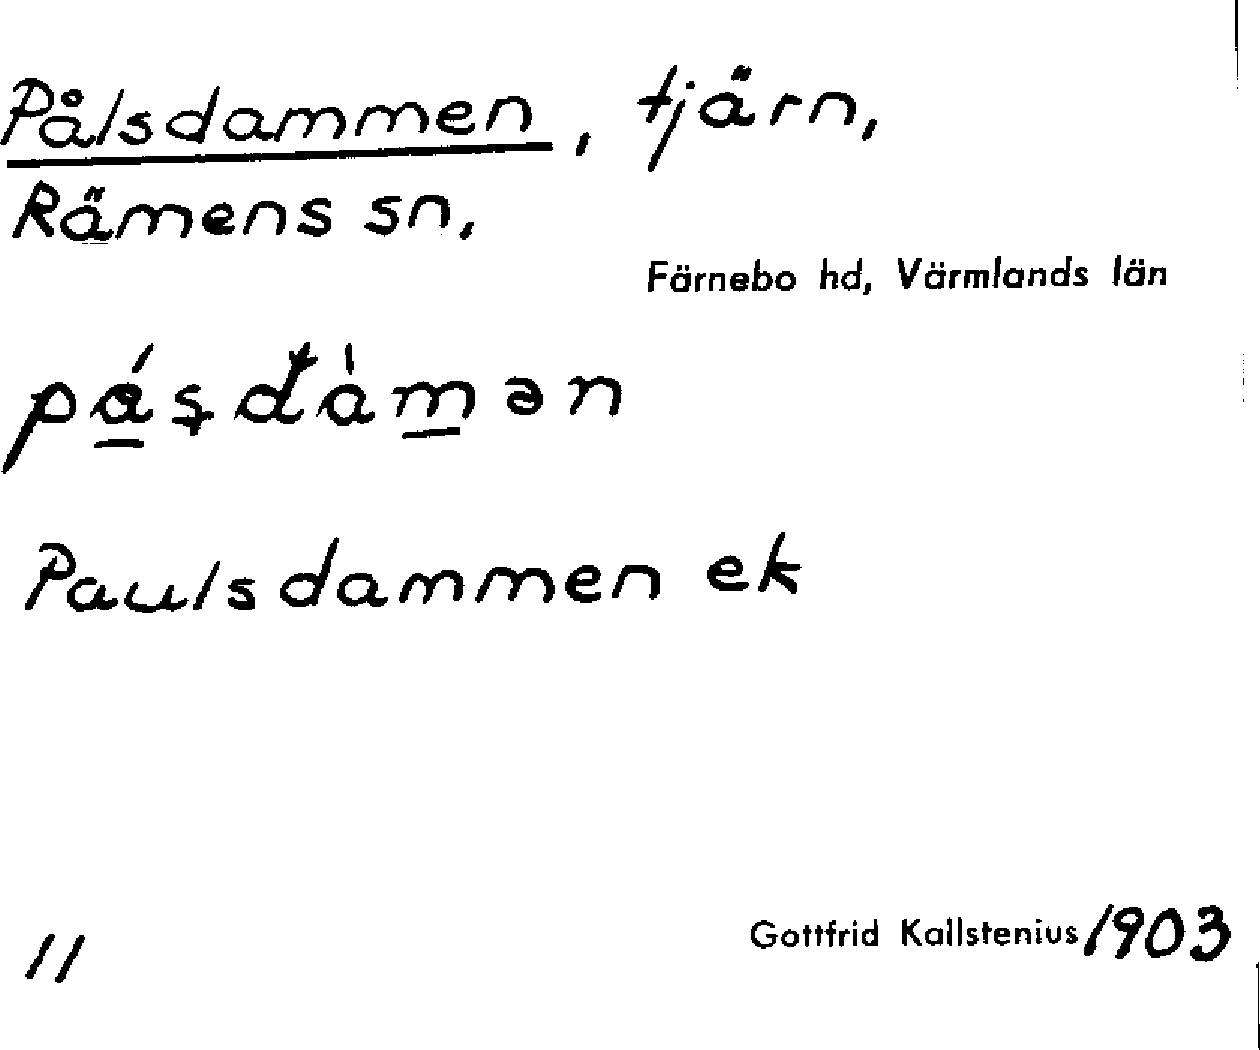 Pålsdammen, tjärn,
Rämens sn,
Färnebo hd, Värmlands län
Paulsdammen ek
11
Gottfrid Kallstenius 1903